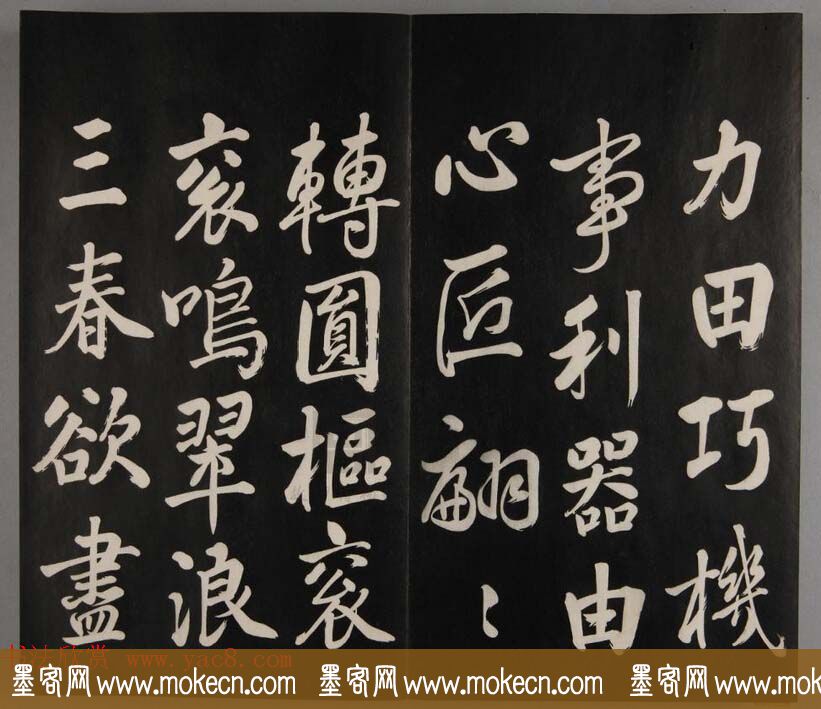 力田巧機
事利器由
心匠翩〻
轉圓樞袞
袞鳴翠浪
三春欲盡
书法欣赏 www.yac8.com
墨客网 www.mokecn.com 墨客网 www.mokecn.com 墨客网 www.mokecn.com